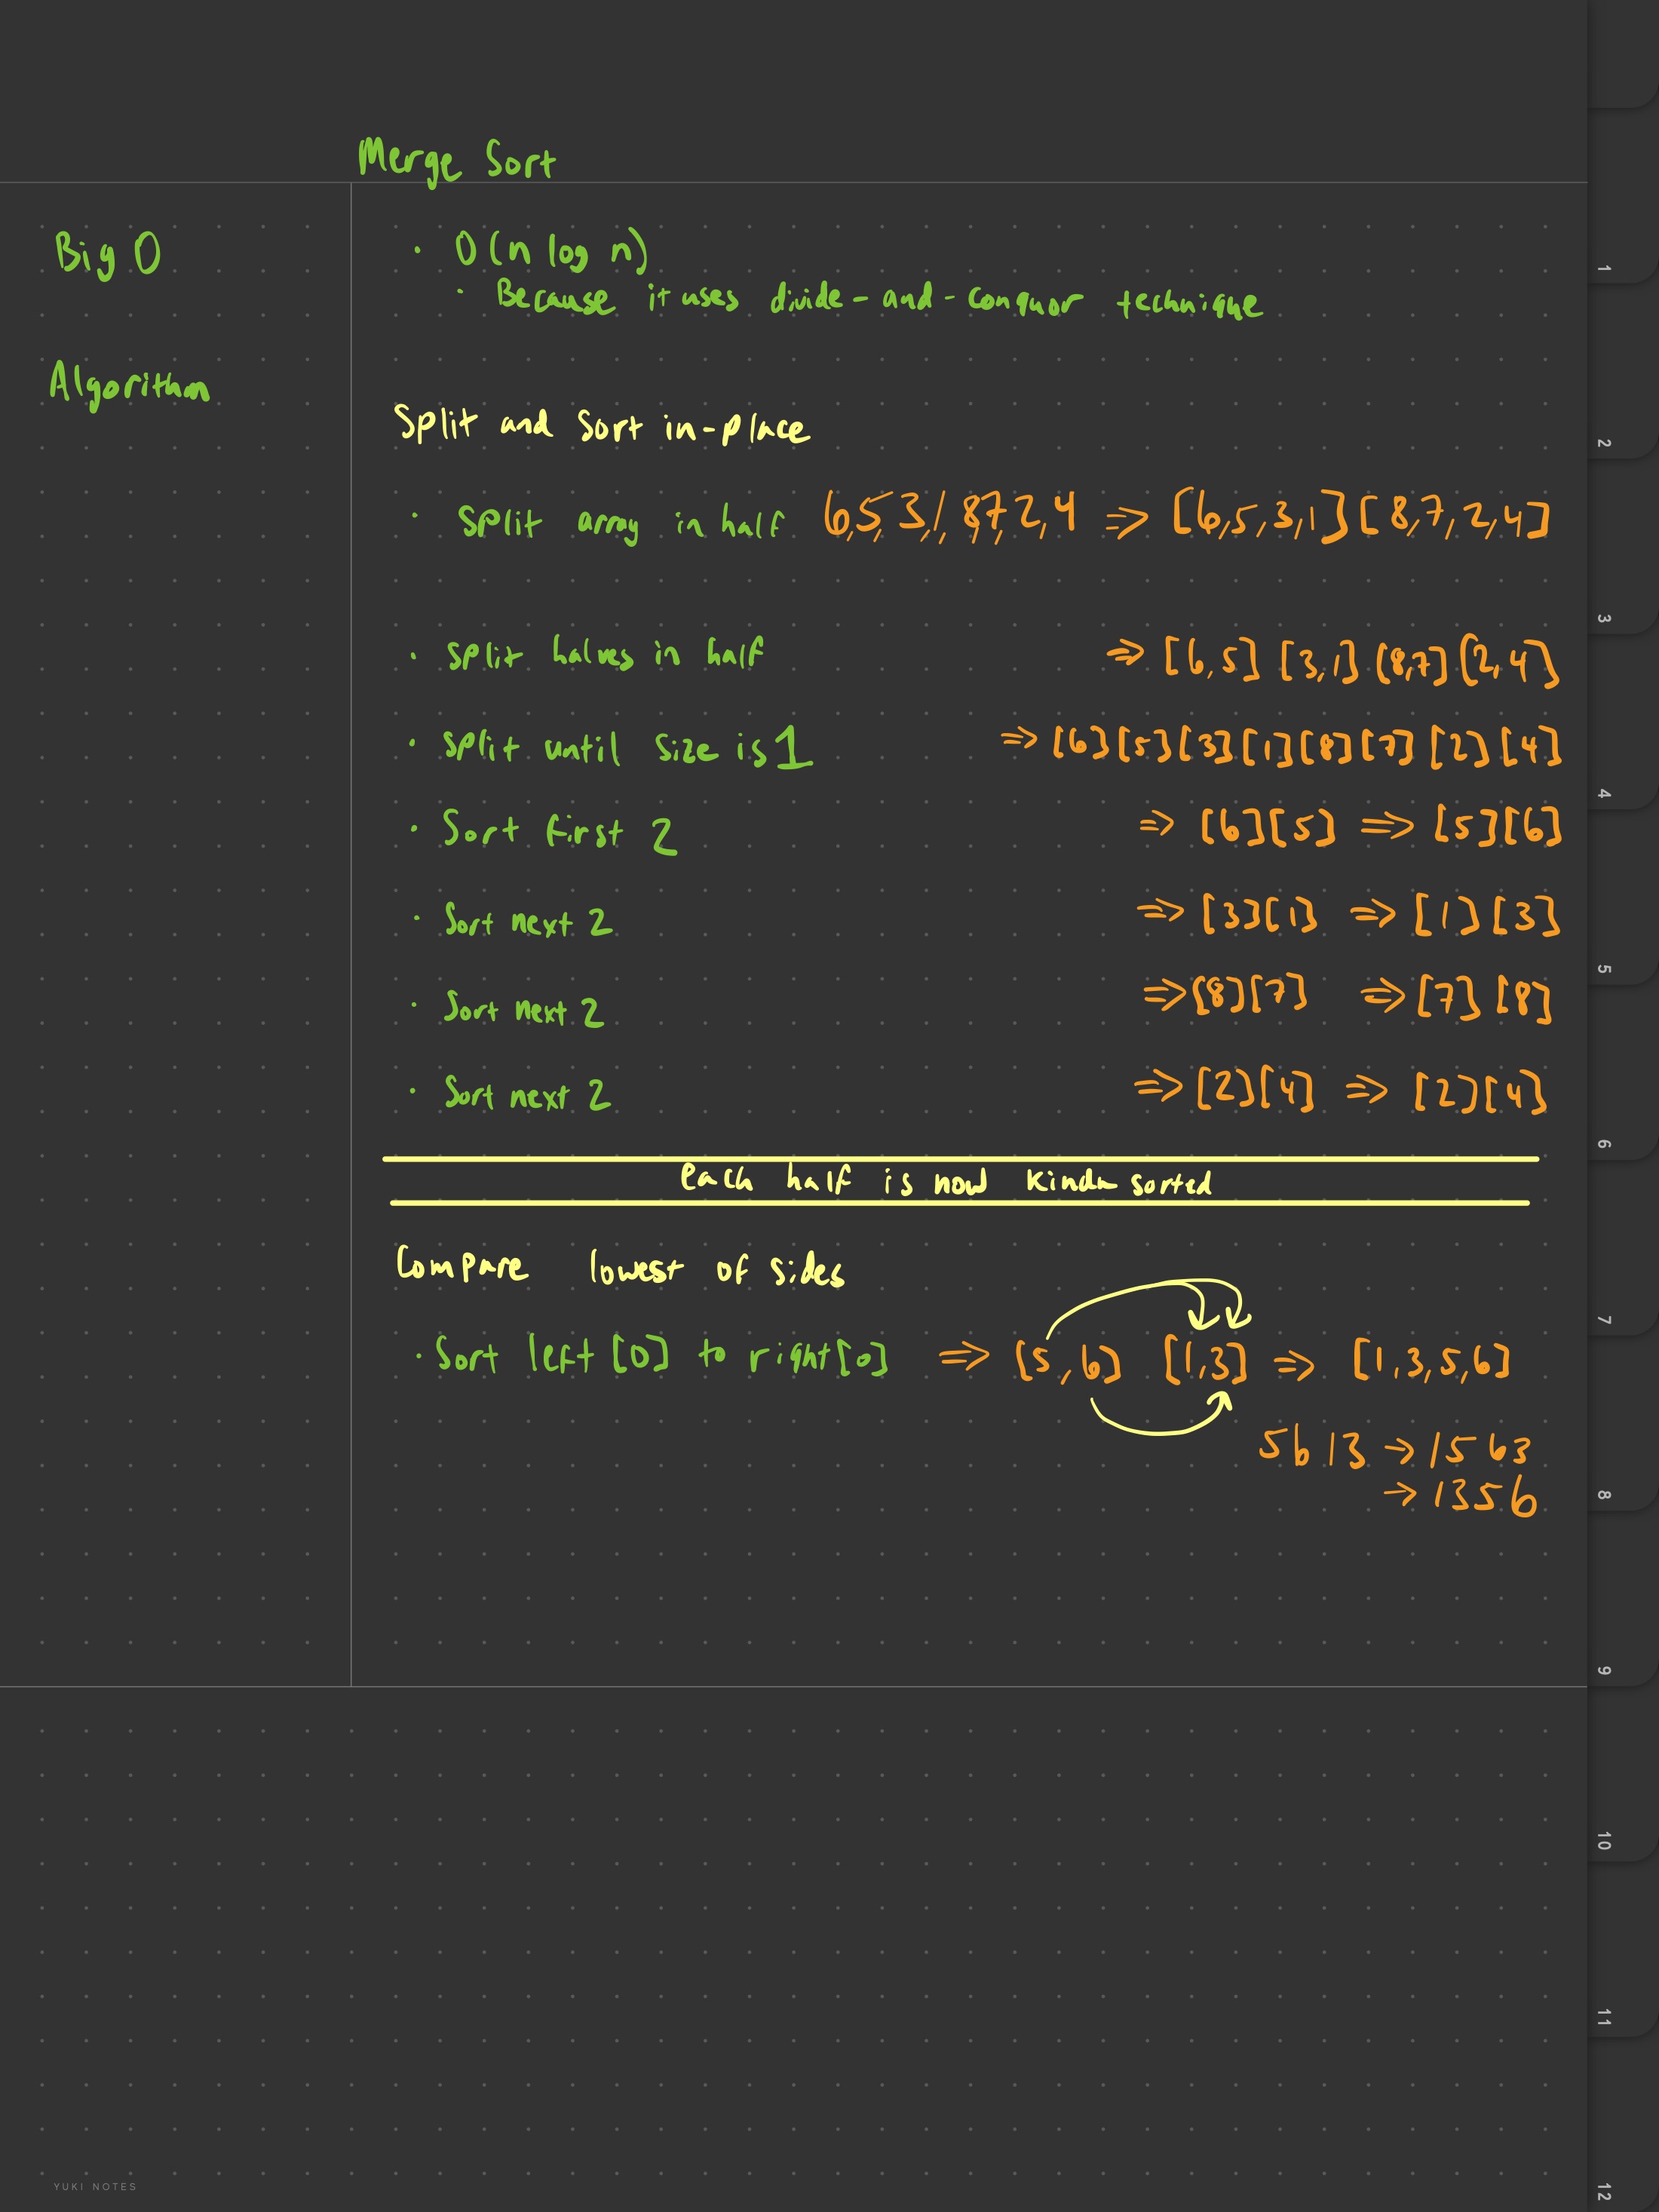 Merge Sort
Big O
· O(n log n)
· Because it uses divide-and-conquor technique
Algorithm
Split and Sort in-place
· split array in half 6,5,3,1,8,7,2,4 => [6,5,3,1][8,7,2,4]
· split halves in half => [6,5][3,1][8,7][2,4]
· split until size is 1 => [6][5][3][1][8][7][2][4]
· Sort first 2 => [6][5] => [5][6]
· Sort next 2 => [3][1] => [1][3]
· Sort next 2 => [8][7] => [7][8]
· Sort next 2 => [2][4] => [2][4]
each half is now kinda sorted
Compare lowest of sides
· Sort left[0] to right[0] => [5,6] [1,3] => [1,3,5,6]
5613 → 1563
→ 1356
1
2
3
4
5
6
7
8
9
10
11
12
YUKI NOTES